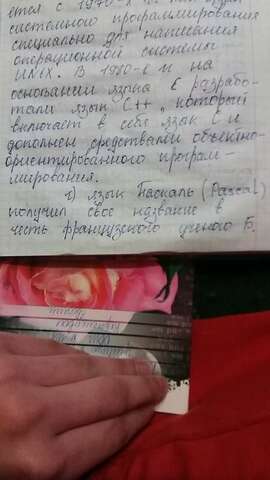 ется с 1970-х
системного программирования
специально для написания
операционной системы
UNIX. В 1980-е и на
основании языка С разрабо-
тали язык С++, который
включает в себя язык С и
дополнен средствами объектно-
ориентированного програм-
мирования.
г) язык Паскаль (Pascal)
получил свое название в
честь французского ученого Б.